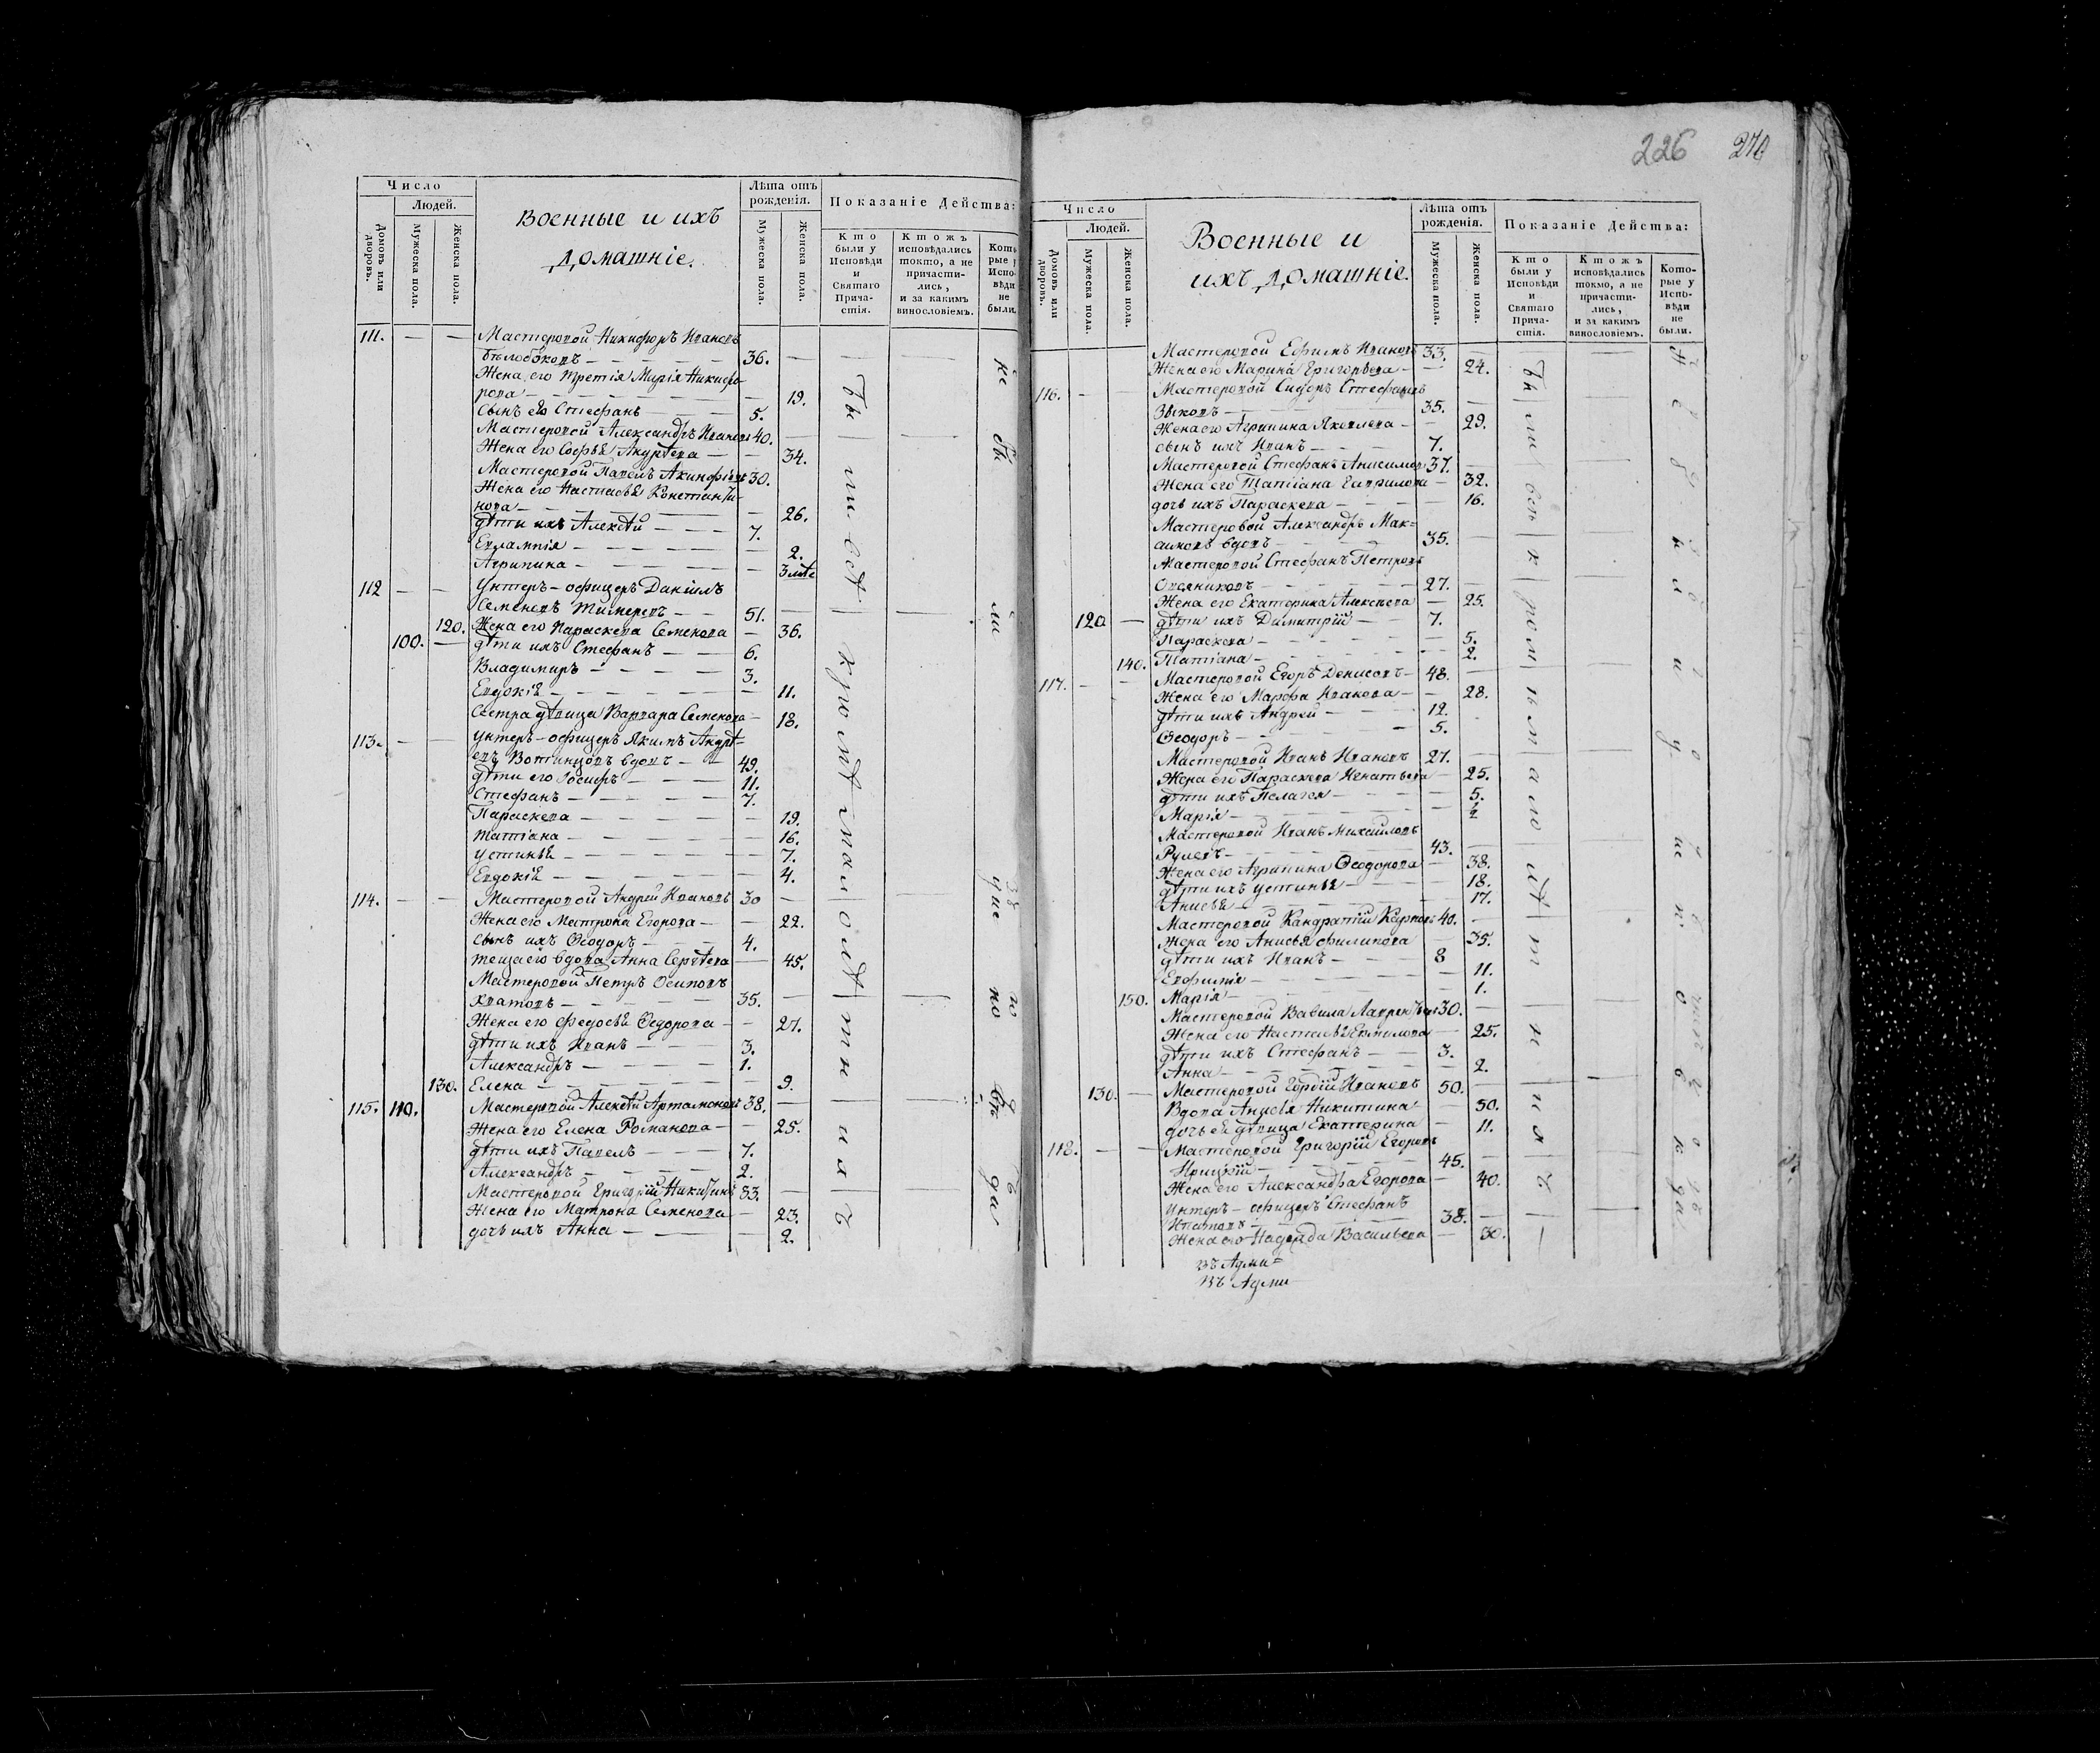 226 270
Число
Людей.
Домовъ или дворовъ.
Мужеска пола.
Женска пола.
Военные и ихъ
домашніе.
Лѣта отъ рожденія.
Мужеска пола.
Женска пола.
Показаніе Действа:
Кто были у Исповѣди и Святаго Причастія.
Ктожъ исповѣдались токмо, а не причастились, и за какимъ винословіемъ.
Которые у Исповѣди не были.
111. — — Мастеровой Никифоръ Ивановъ
Бѣлобоковъ — 36. —
Жена его третія Марія Никифо-
рова — — 19.
Сынъ его Стефанъ — 5.
Мастеровой Александръ Ивановъ 40. —
Жена его Софья Андрѣева — — 34.
Мастеровой Павелъ Акинфіевъ 30.
Жена его Настасья Константи-
нова — — 26.
дѣти ихъ Алексѣй — 7.
Евлампія — — 2.
Агрипина — — 3
112 — — Унтеръ-офицеръ Даніилъ
Семеновъ — 51. —
120. Жена его Параскева Семенова — 36.
100. — дѣти ихъ Стефанъ — 6.
Владимиръ — 3.
Евдокія — — 11.
Сестра дѣвица Варвара Семенова — 18.
113. — — Унтеръ-офицеръ Якимъ Андрѣ-
евъ Вотинцовъ вдовъ — 49.
дѣти его Іосифъ — 11.
Стефанъ — 7.
Параскева — — 19.
Татіана — — 16.
Устинья — — 7.
Евдокія — — 4.
114. — — Мастеровой Андрей Ивановъ 30 —
Жена его Матрона Егорова — 22.
сынъ ихъ Ѳеодоръ — 4.
теща его вдова Анна Сергѣева — 45.
Мастеровой Петръ Осиповъ
Хватовъ — 35. —
Жена его Федосья Ѳедорова — — 27.
дѣти ихъ Иванъ — 3.
Александръ — 1.
130. Елена — — 9.
115. 110. Мастеровой Алексѣй Артамоновъ 38. —
Жена его Елена Романова — — 25.
дѣти ихъ Павелъ — 7.
Александръ — 2.
Мастеровой Григорій Никитинъ 33. —
Жена его Матрона Семенова — 23.
дочь ихъ Анна — — 2.
Число
Людей.
Домовъ или дворовъ.
Мужеска пола.
Женска пола.
Военные и
ихъ домашніе.
Лѣта отъ рожденія.
Мужеска пола.
Женска пола.
Показаніе Действа:
Кто были у Исповѣди и Святаго Причастія.
Ктожъ исповѣдались токмо, а не причастились, и за какимъ винословіемъ.
Которые у Исповѣди не были.
Мастеровой Ефимъ Ивановъ 33. —
Жена его Марина Григорьева — 24.
116. — — Мастеровой Сидоръ Стефановъ
Зыковъ — 35. —
Жена его Агрипина Яковлева — 29.
сынъ ихъ Иванъ — 7.
Мастеровой Стефанъ Анисимовъ 37. —
Жена его Татіана Гаврилова — 32.
дочь ихъ Параскева — — 16.
Мастеровой Александръ Мак-
симовъ вдовъ — 35. —
Мастеровой Стефанъ Петровъ
Овсяниковъ — 27. —
Жена его Екатерина Алексеева — 25.
120 — дѣти ихъ Димитрій — 7.
Параскева — — 5.
140. Татіана — — 2.
117. — — Мастеровой Егоръ Денисовъ — 48. —
Жена его Марфа Иванова — — 28.
дѣти ихъ Андрей — 12.
Ѳеодоръ — 5.
Мастеровой Иванъ Ивановъ 27. —
Жена его Параскева Игнатьева — 25.
дѣти ихъ Пелагея — — 5.
Марія —
Мастеровой Иванъ Михайловъ
Рулевъ — 43. —
Жена его Агрипина Ѳеодорова — 38.
дѣти ихъ Устинья — — 18.
Анисья — — 17.
Мастеровой Кандратій Карповъ 40. —
Жена его Анисья Филипова — 35.
дѣти ихъ Иванъ — 8
Евфимія — — 11.
150. Марія — — 1.
Мастеровой Вавила Лаврентьевъ 30. —
Жена его Настасья Ермолова — 25.
дѣти ихъ Стефанъ — 3.
Анна — — 2.
130. — Мастеровой Гордій Ивановъ 50. —
Вдова Анисья Никитина — 50.
дочь ея дѣвица Екатерина — 11.
118. — — Мастеровой Григорій Егоровъ
45. —
Жена его Александра Егорова — 40.
Унтеръ-офицеръ Стефанъ
Ипатовъ — 38. —
Жена его Надежда Васильева — 30.